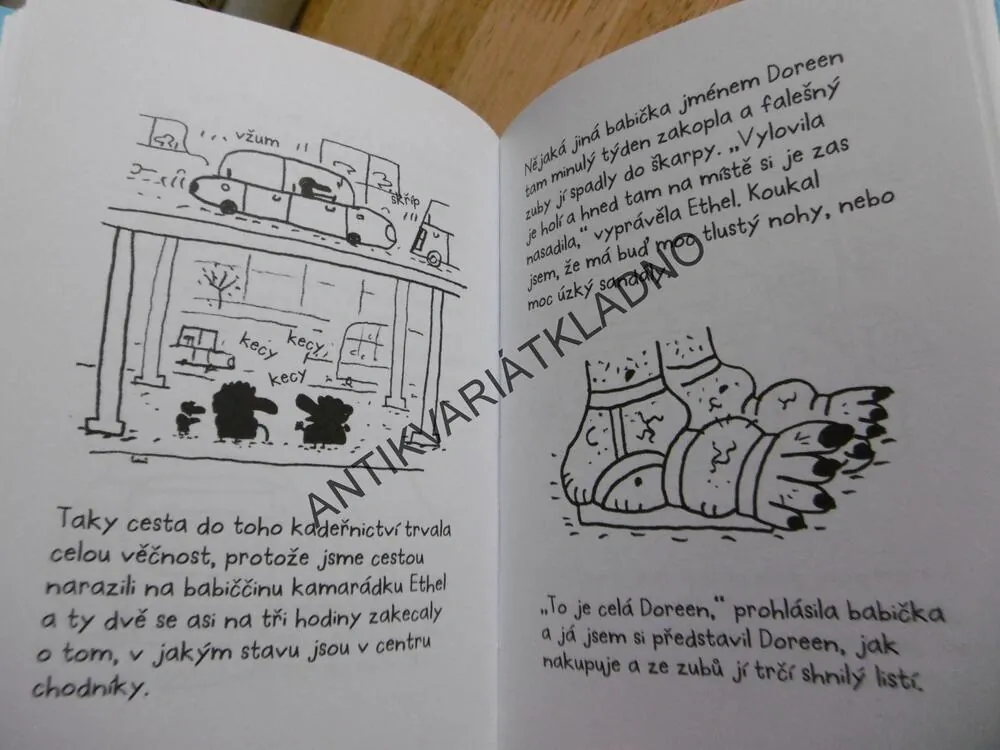 vžum
skříp
kecy
kecy
kecy
Taky cesta do toho kadeřnictví trvala
celou věčnost, protože jsme cestou
narazili na babiččinu kamarádku Ethel
a ty dvě se asi na tři hodiny zakecaly
o tom, v jakým stavu jsou v centru
chodníky.
Nějaká jiná babička jménem Doreen
tam minulý týden zakopla a falešný
zuby jí spadly do škarpy. „Vylovila
je holí a hned tam na místě si je zas
nasadila,“ vyprávěla Ethel. Koukal
jsem, že má buď moc tlustý nohy, nebo
moc úzký sandály.
„To je celá Doreen,“ prohlásila babička
a já jsem si představil Doreen, jak
nakupuje a ze zubů jí trčí shnilý listí.
ANTIKVARIÁTKLADNO